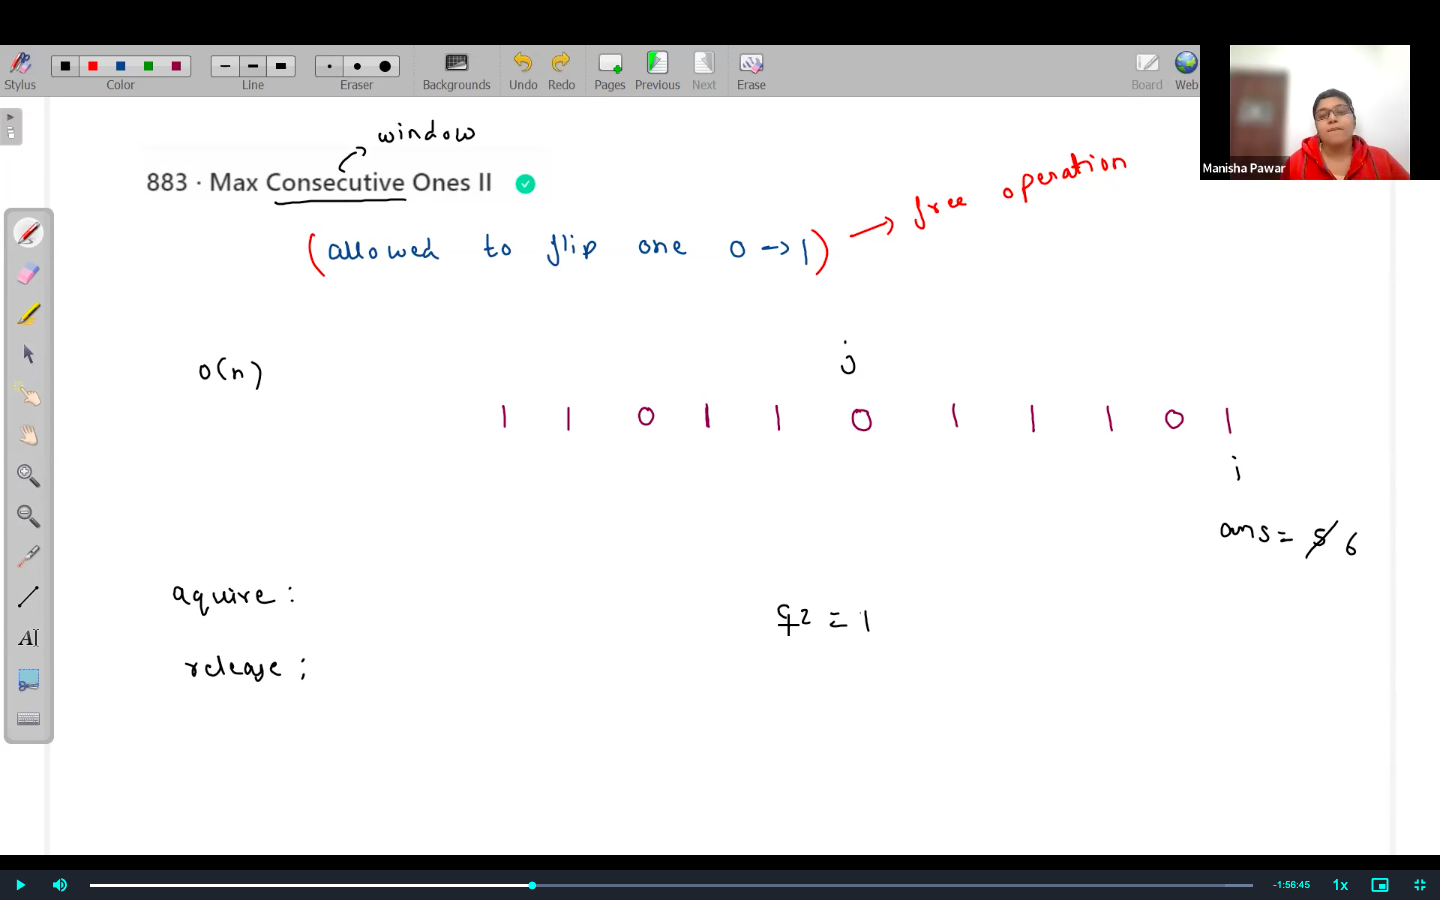 Stylus Color Line Eraser Backgrounds Undo Redo Pages Previous Next Erase Board Web
Manisha Pawar
window
883 · Max Consecutive Ones II
free operation
(allowed to flip one 0 -> 1)
j
O(n)
1 1 0 1 1 0 1 1 1 0 1
i
ans = 5 6
aquire :
= 1
release ;
AI
-1:56:45 1x